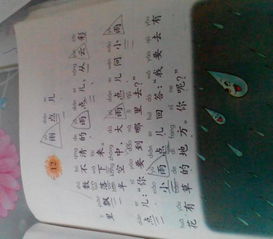 12 雨点儿
数不清的雨点儿,从云彩
里飘落下来。
半空中,大雨点儿问小雨
点儿:“你要到哪里去?”
小雨点儿回答:“我要去有
花有草的地方。你呢?”